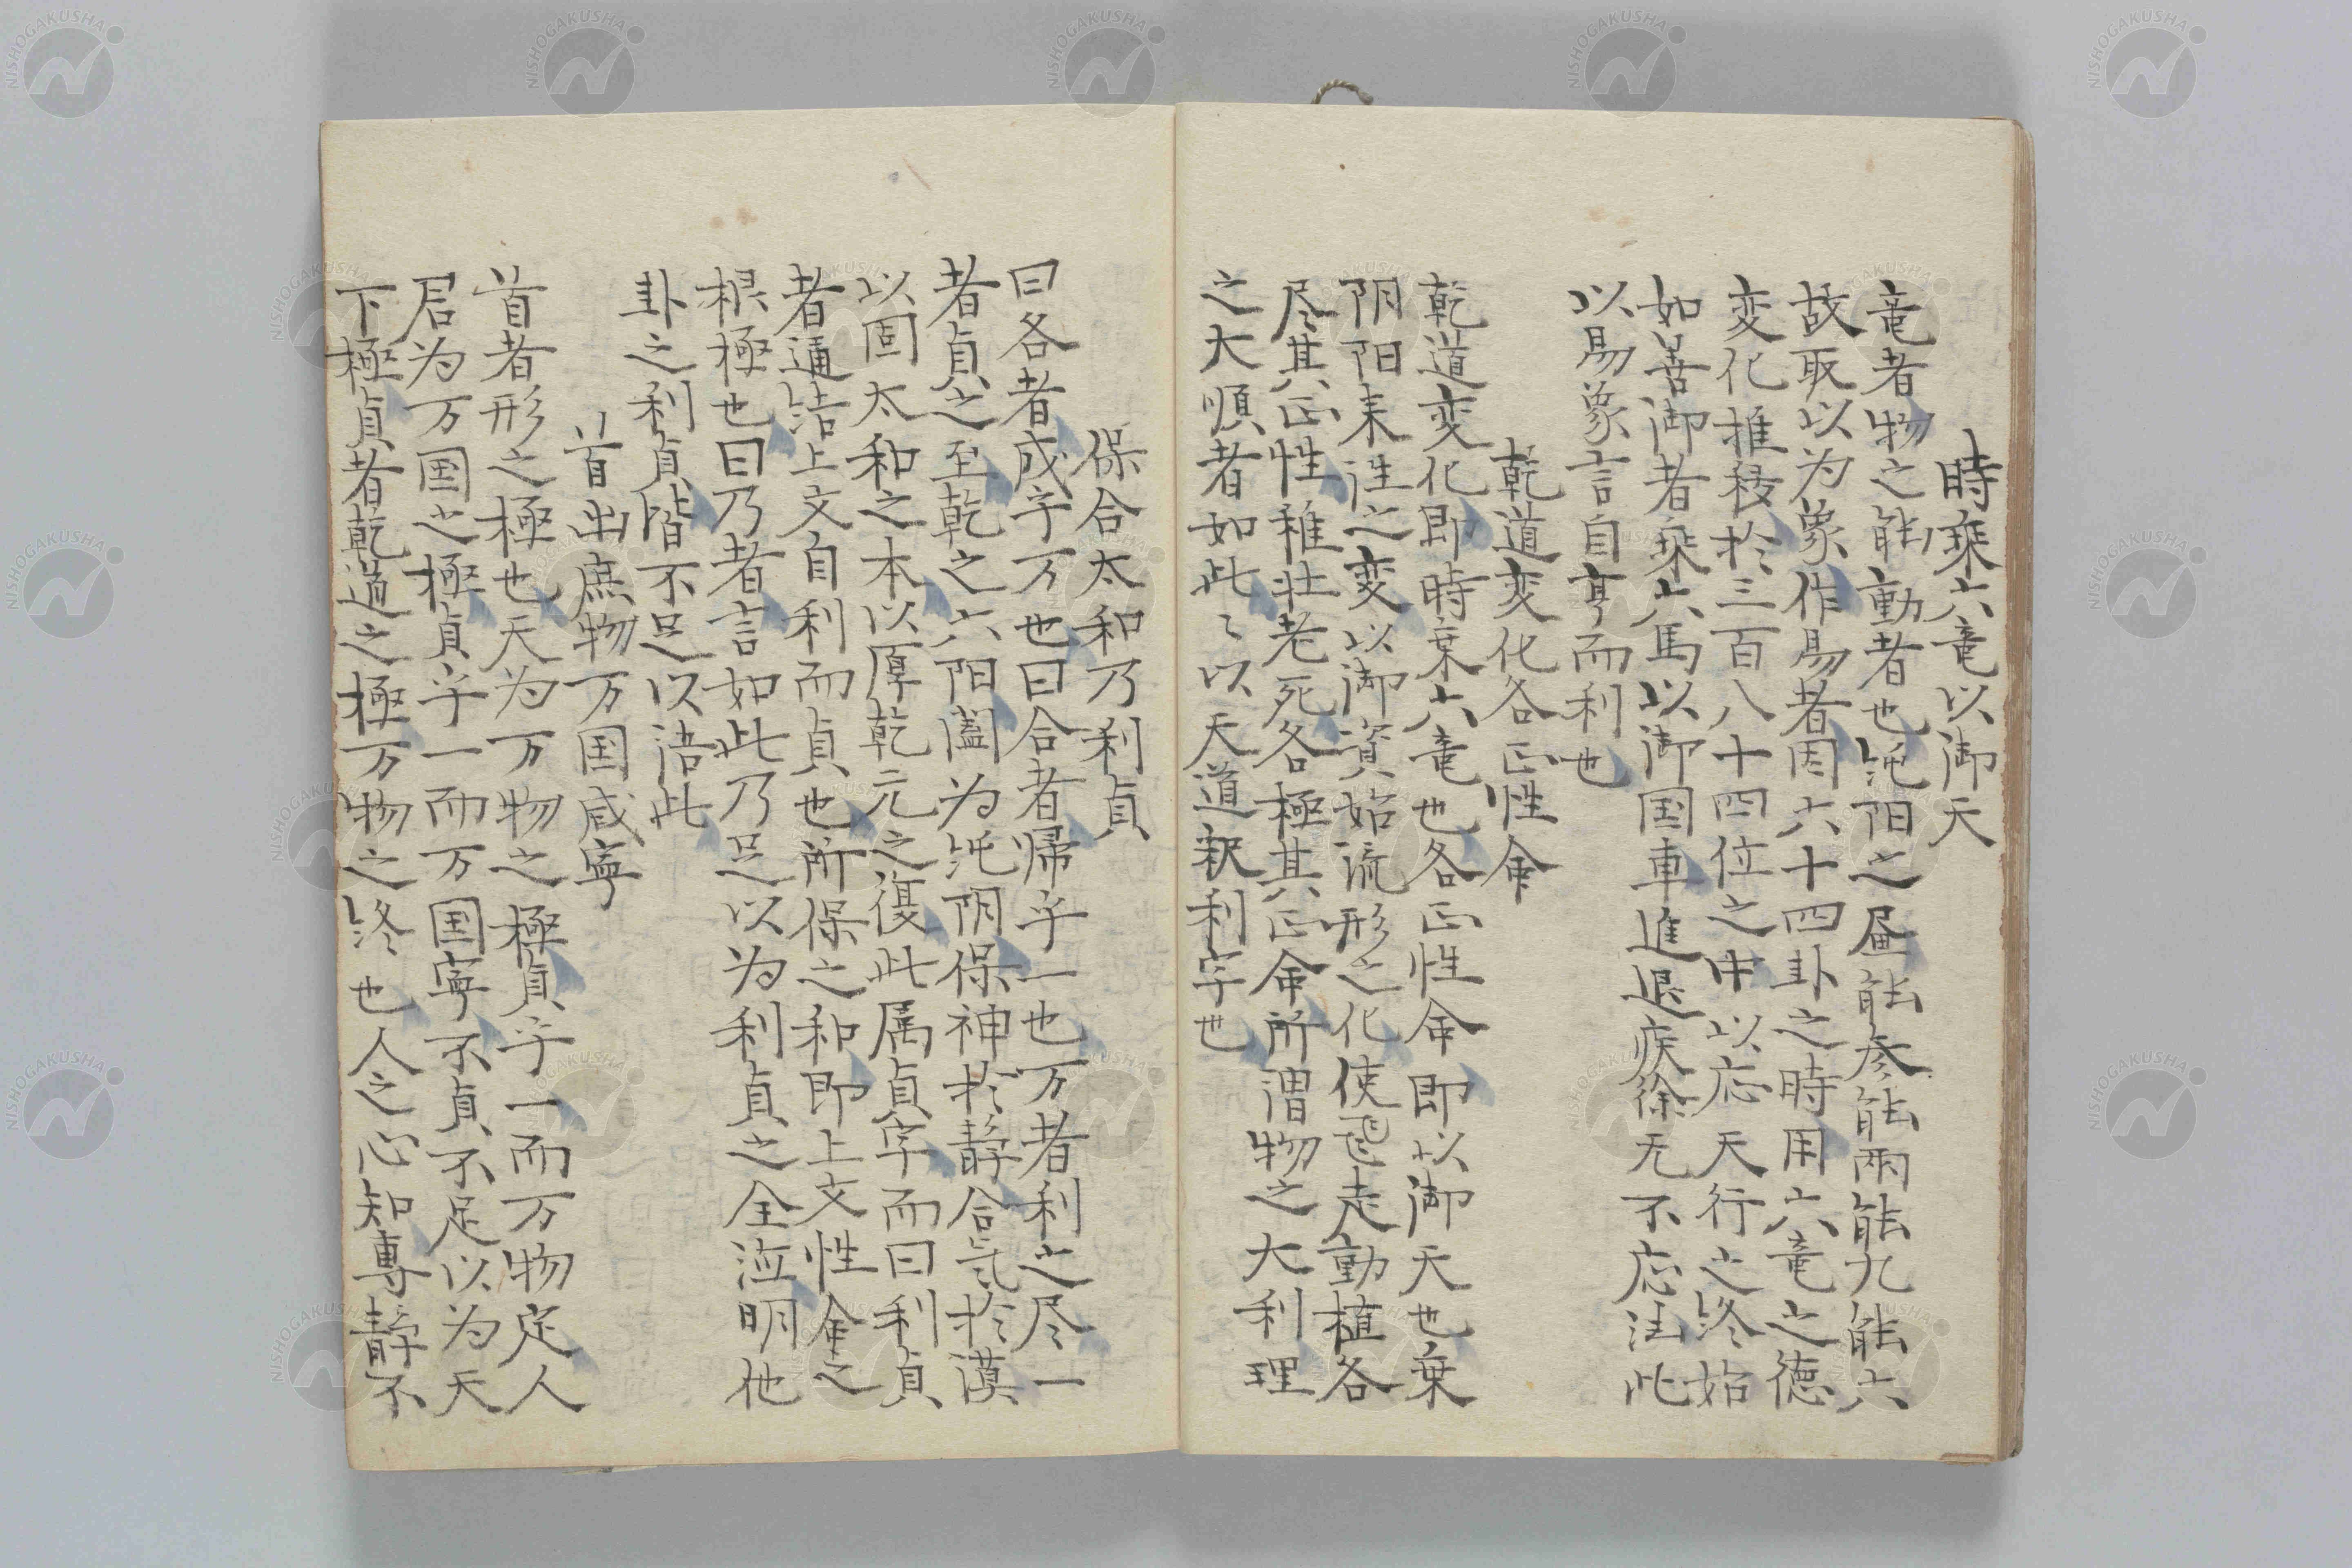 時乗六竜以御天
竜者物之能動者也純阳之昼能参能兩能九能六
故取以为象作易者因六十四卦之時用六竜之德
変化推移於三百八十四位之中以応天行之终始
如善御者乗六馬以御国車進退疾徐无不応法此
以易象言自亨而利也
乾道変化各正性命
乾道変化即時乗六竜也各正性命即以御天也乗
阴阳来往之変以御資始流形之化使飛走動植各
尽其正性稚壮老死各極其正命所谓物之大利理
之大順者如此〻以天道釈利字也
保合太和乃利貞
曰各者成乎万也曰合者帰乎一也万者利之尽一
者貞之至乾之六阳闔为純阴保神於静合气於漠
以固太和之本以厚乾元之復此属貞字而曰利貞
者通结上文自利而貞也所保之和即上文性命之
根極也曰乃者言如此乃足以为利貞之全泣明他
卦之利貞階不足以语此
首出庶物万国咸寧
首者形之極也天为万物之極貞乎一而万物定人
君为万国之極貞乎一而万国寧不貞不足以为天
下極貞者乾道之極万物之终也人之心知專静不
NISHOGAKUSHA